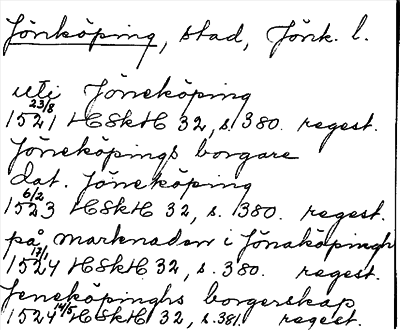 Jönköping, stad, Jönk. l.
uti Jöneköping
1521 23/8 HSkH 32, s. 380. regest.
Jöneköpings borgare
dat. Jöneköping
1523 6/2 HSkH 32, s. 380. regest.
på marknaden i Jönaköpingh
1524 17/1 HSkH 32, s. 380. regest.
Jeneköpinghs borgerskap
1524 14/5 HSkH 32, s. 381. regest.